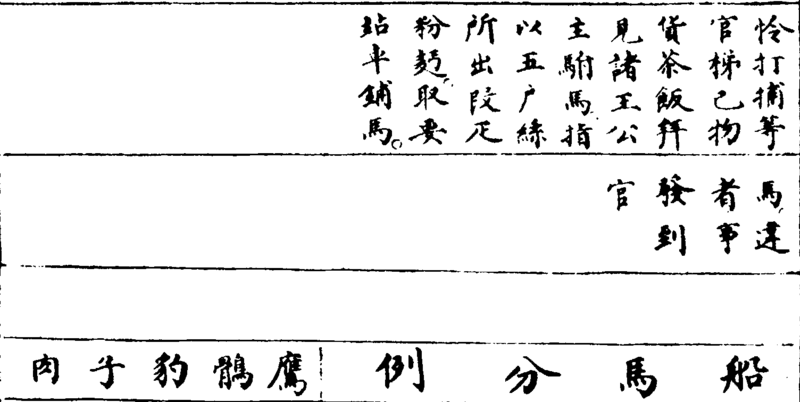 怜打捕等
官梯己物
貨茶飯拜
見諸王公
主駙馬指
以五户絲
所出段疋
粉麵取要
站車鋪馬
馬違
者事
發到
官
船馬分例
鷹鶻豹子肉